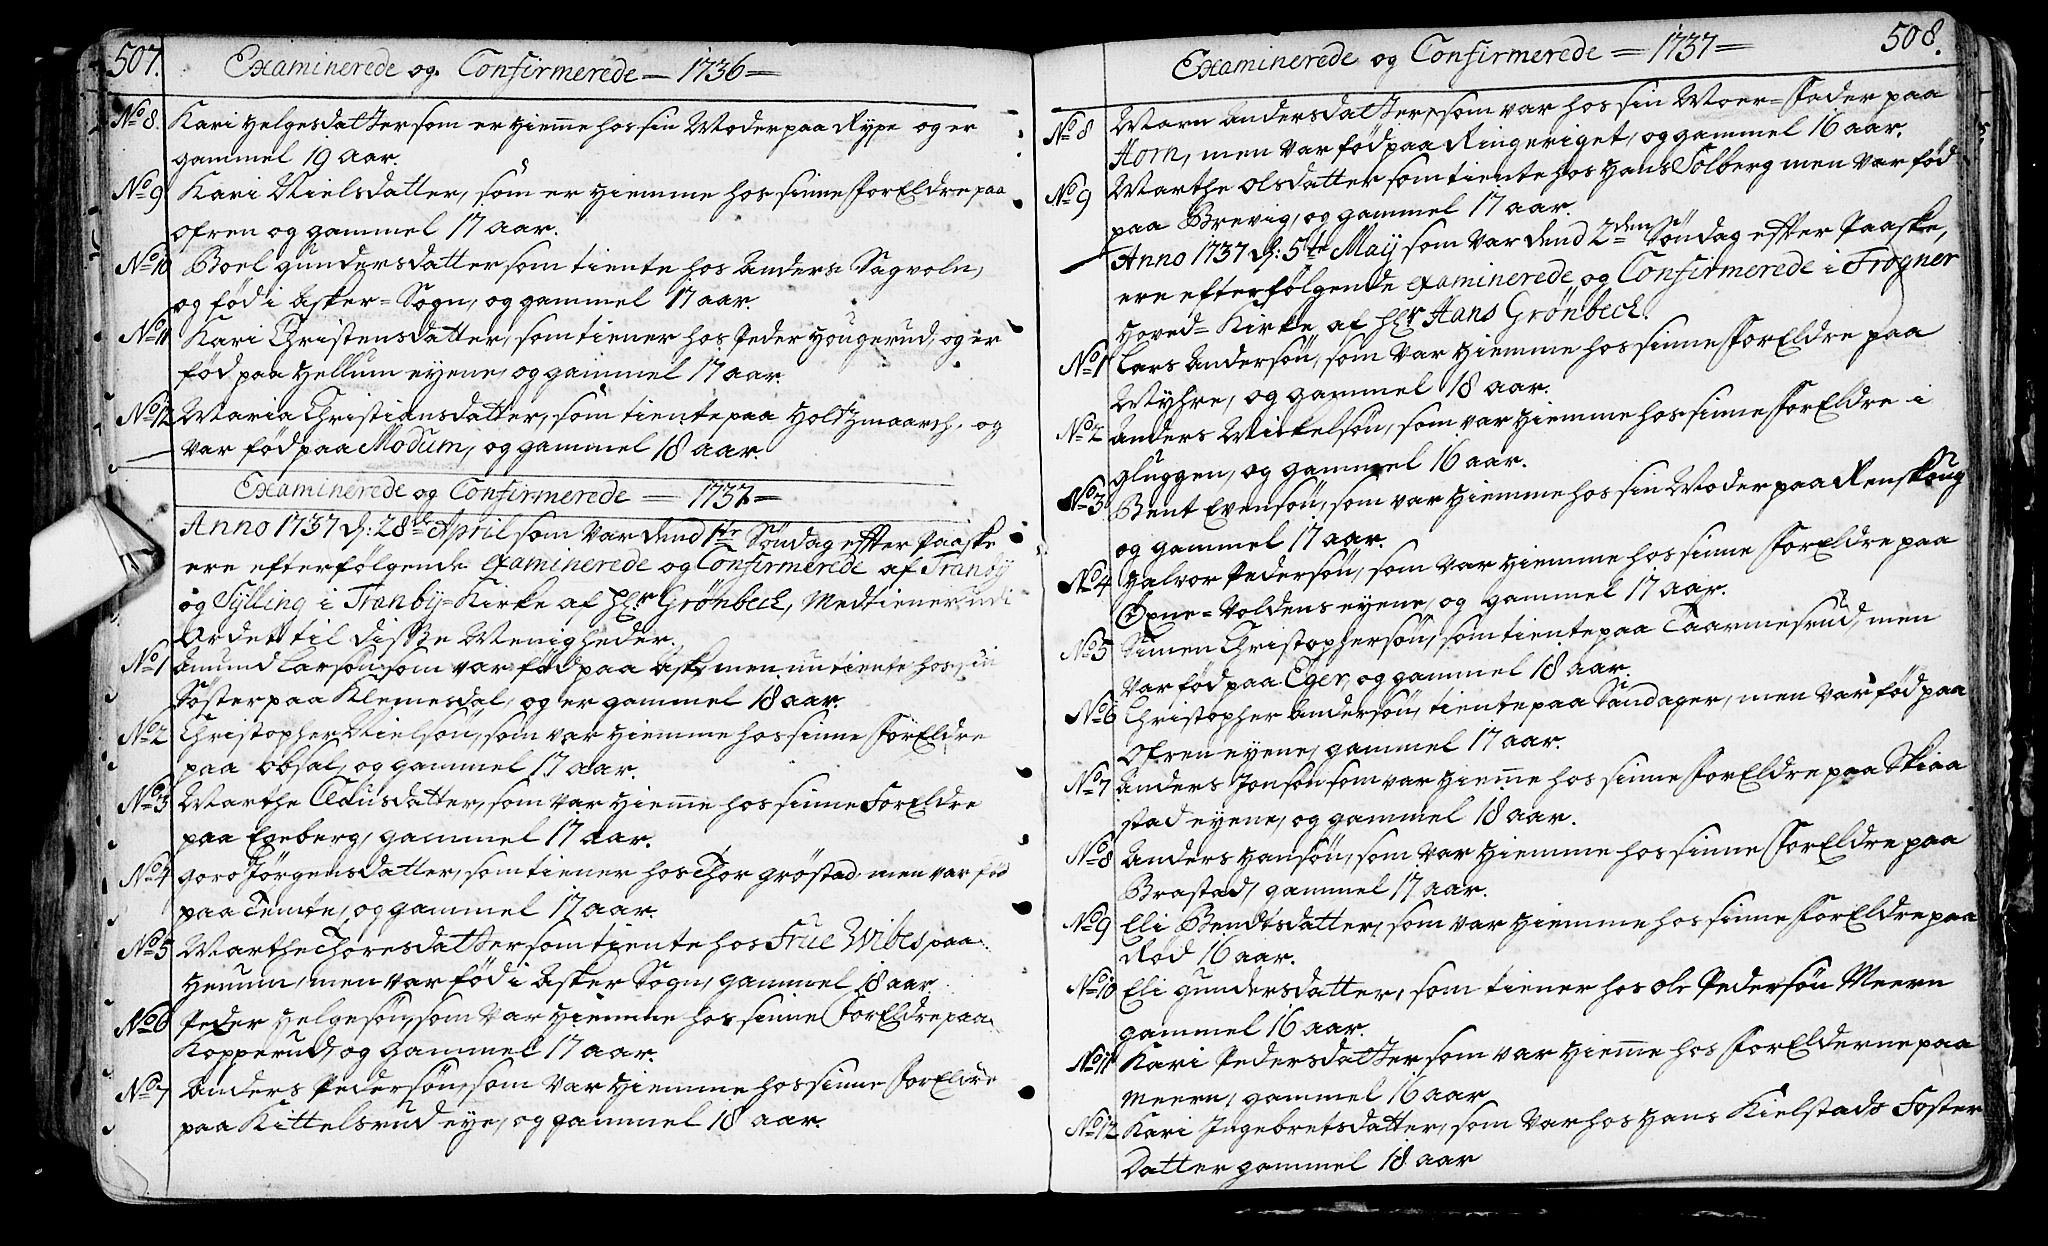 507.
Examinerede og Confirmerede — 1736 —
No 8. Kari Helgesdatter som er Hiemme hos sin Moder paa Rype og er
gammel 19 aar.
No 9 Kari Nielsdatter, som er Hiemme hos sinne ForEldre paa
Ofren og gammel 17 aar.
No 10 Boel Gundersdatter som tiente hos Anders Sagvoln,
og fød i Asker = Sogn, og gammel 17 aar.
No 11 Kari Christensdatter, som tiener hos Peder Hougerud, og er
fød paa Hellum eyene, og gammel 17 aar.
No 12 Maria Christiansdatter, som tiente paa Holtzmaarch, og
var fød paa Modum, og gammel 18 aar.
Examinerede og Confirmerede — 1737 —
Anno 1737 d: 28de April som var dend 1te Søndag effter Paaske
ere efterfølgende Examinerede og Confirmerede af Tranby
og Sylling i Tranby = Kirke af Hr Grønbeck, Medtiener udi
Ordet til disse Menigheder.
No 1 Amund Larsøn som var fød paa Ask, men nu tiente hos sin
Søster paa Klemesdal, og er gammel 18 aar.
No 2 Christopher Nielsøn, som var Hiemme hos sinne ForEldre
paa Obsal, og gammel 17 aar.
No 3 Marthe Aadusdatter, som var Hieme hos sinne ForEldre
paa Egeberg, gammel 17 aar.
No 4 Goro Jørgensdatter, som tiener hos Thor Grøstad men var fød
paa Temte, og gammel 17 aar.
No 5 Marthe Thoresdatter som tiente hos Frue Wibes paa
Henum, men var fød i Asker Sogn, gammel 18 aar.
No 6 Peder Helgesøn, som var Hiemme hos sinne ForEldre paa
Kopperud, og gammel 17 aar.
No 7 Anders Pedersøn, som var Hiemme hos sinne ForEldre
paa Kittelsrud eye, og gammel 18 aar.
508.
Examinerede og Confirmerede — 1737 —
No 8 Maren Andersdatter, som var hos sin Moer = Fader paa
Horn, men var fød paa Ringeriget, og gammel 16 aar.
No 9 Marthe Olsdatter som tiente hos Hans Solberg men var fød
paa Brevig, og gammel 17 aar.
Anno 1737 d: 5te Maij som var dend 2den Søndag effter Paaske,
ere efterfølgende examinerede og Confirmerede i Frogner
Hoved = Kirke af Hr Hans Grønbeck.
No 1 Lars Andersøn, som var Hiemme hos sinne ForEldre paa
Myhre, og gammel 18 aar.
No 2 Anders Mickelsøn, som var Hiemme hos sinne ForEldre i
Gluggen, og gammel 16 aar.
No 3 Bent Evensøn, som var Hiemme hos sin Moder paa Renskoug
og gammel 17 aar.
No 4 Halvor Pedersøn, som var Hiemme hos sinne ForEldre paa
Opne = Voldens eyene, og gammel 17 aar.
No 5 Simen Christophersøn, som tiente paa Taarmesrud, men
var fød paa Eger, og gammel 18 aar.
No 6 Christopher Andersøn, tiente paa Sandager, men var fød paa
Ofren eyene, gammel 17 aar.
No 7 Anders Jonsøn som var Hieme hos sinne ForEldre paa Skiaa
stad eyene, og gammel 18 aar.
No 8 Anders Hansøn, som var Hiemme hos sinne ForEldre paa
Brastad, gammel 17 aar.
No 9 Eli Bendtsdatter, som var Hiemme hos sinne ForEldre paa
Rød 16 aar.
No 10 Eli Gundersdatter, som tiener hos Ole Pedersøn Meern
gammel 16 aar.
No 11 Kari Pedersdatter som var Hieme hos ForElderne paa
Meern, gammel 16 aar
No 12 Kari Ingebretsdatter, som var hos Hans Kielstads Foster
Datter gammel 18 aar